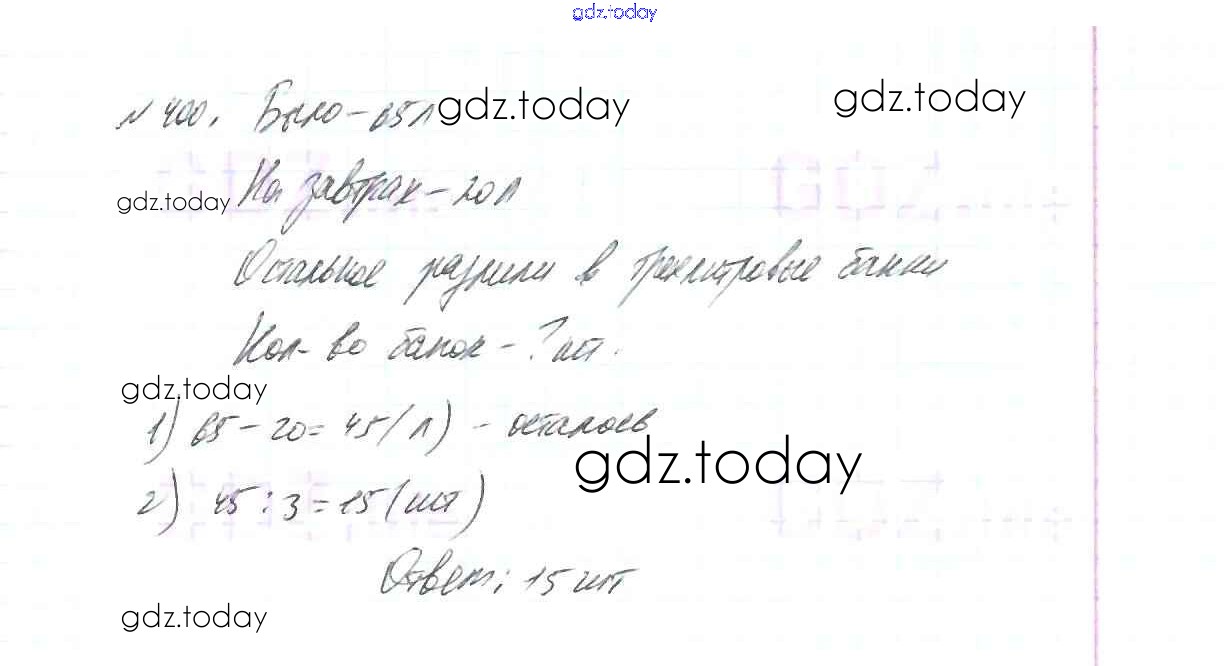 gdz.today
№ 400. Было - 65 л gdz.today gdz.today
gdz.today На завтрак - 20 л
Остальное разлили в трехлитровые банки
Кол-во банок - ? шт.
gdz.today
1) 65 - 20 = 45 (л) - осталось
gdz.today
2) 45 : 3 = 15 (шт)
Ответ: 15 шт
gdz.today